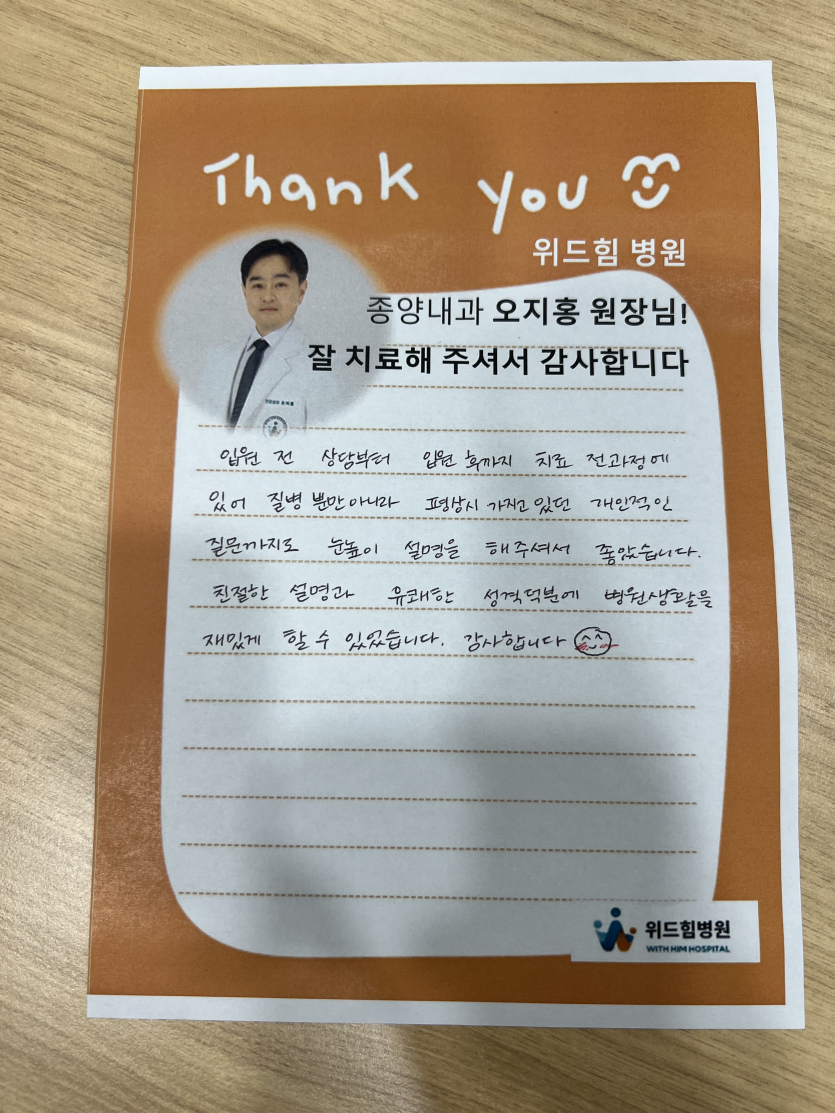 Thank you
위드힘 병원
종양내과 오지홍 원장님!
잘 치료해 주셔서 감사합니다
입원 전 상담부터 입원 후까지 치료 전과정에
있어 질병 뿐만 아니라 평상시 가지고 있던 개인적인
질문까지도 눈높이 설명을 해주셔서 좋았습니다.
친절한 설명과 유쾌한 성격덕분에 병원생활을
재밌게 할 수 있었습니다. 감사합니다
위드힘병원
WITH HIM HOSPITAL